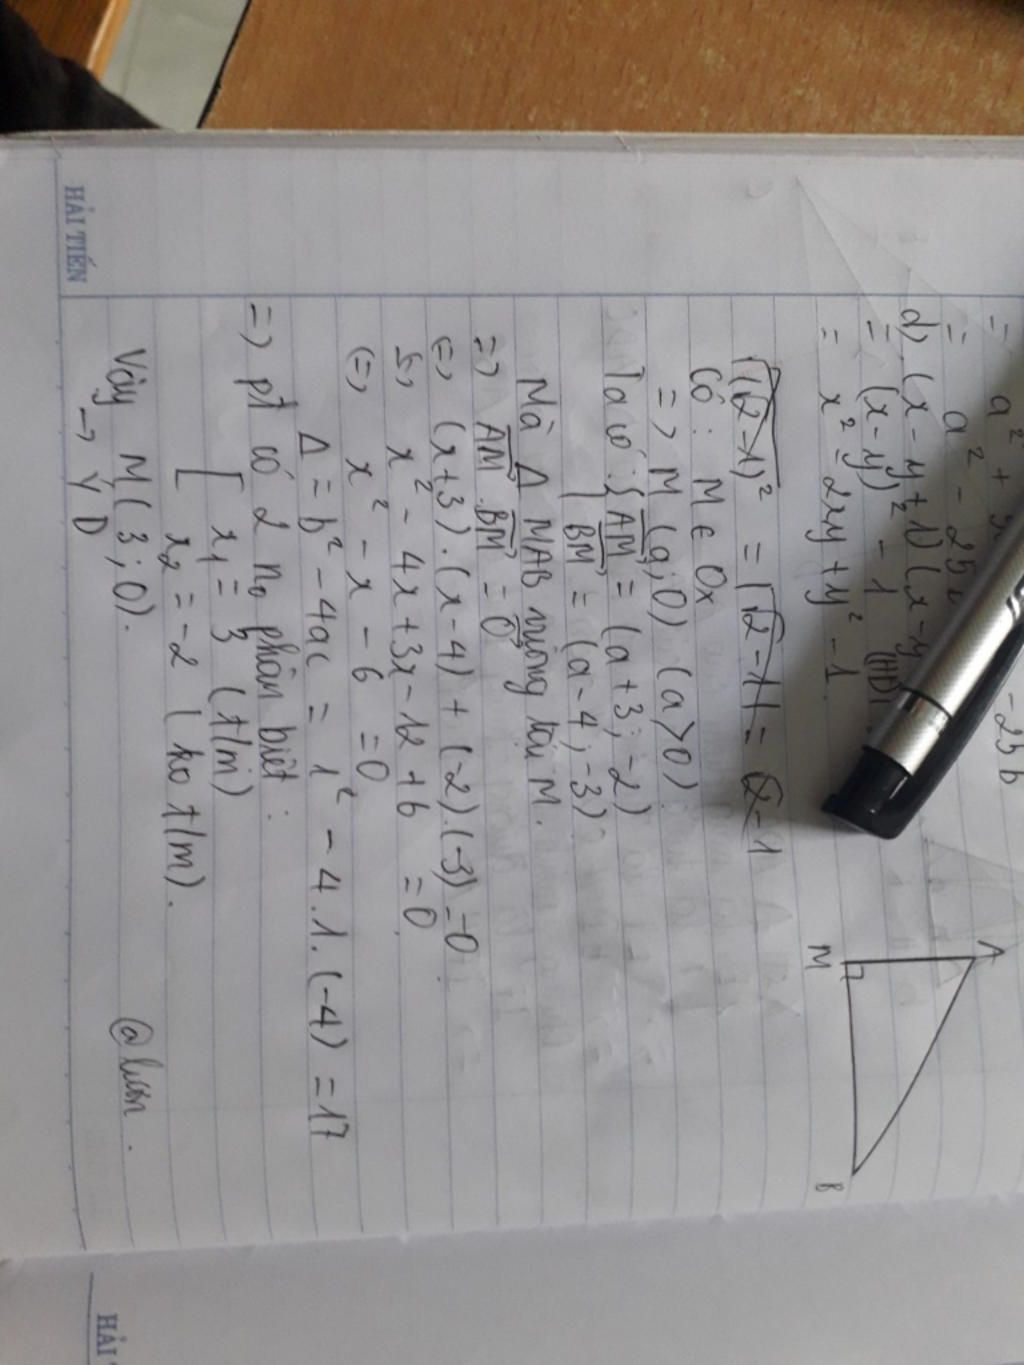 = a² +
= a² - 25b
- 25b
d) (x - y + 1)(x - y
= (x - y)² - 1 (HĐT
= x² - 2xy + y² - 1.
A
M
B
√(√2 - 1)² = |√2 - 1| = √2 - 1
Có : M ∈ Ox
=> M (a; 0) (a > 0)
Ta có : { AM = (a + 3; -2)
BM = (a - 4; -3)
Mà Δ MAB vuông tại M.
=> AM . BM = 0
(=) (x+3).(x-4) + (-2).(-3) = 0.
x² - 4x + 3x - 12 + 6 = 0.
(=) x² - x - 6 = 0
Δ = b² - 4ac = 1² - 4.1.(-4) = 17
=> pt có 2 n₀ phân biệt :
[ x₁ = 3 (t/m)
x₂ = -2 (ko t/m).
Vậy M (3; 0).
-> Ý D
HẢI TIẾN
HẢI